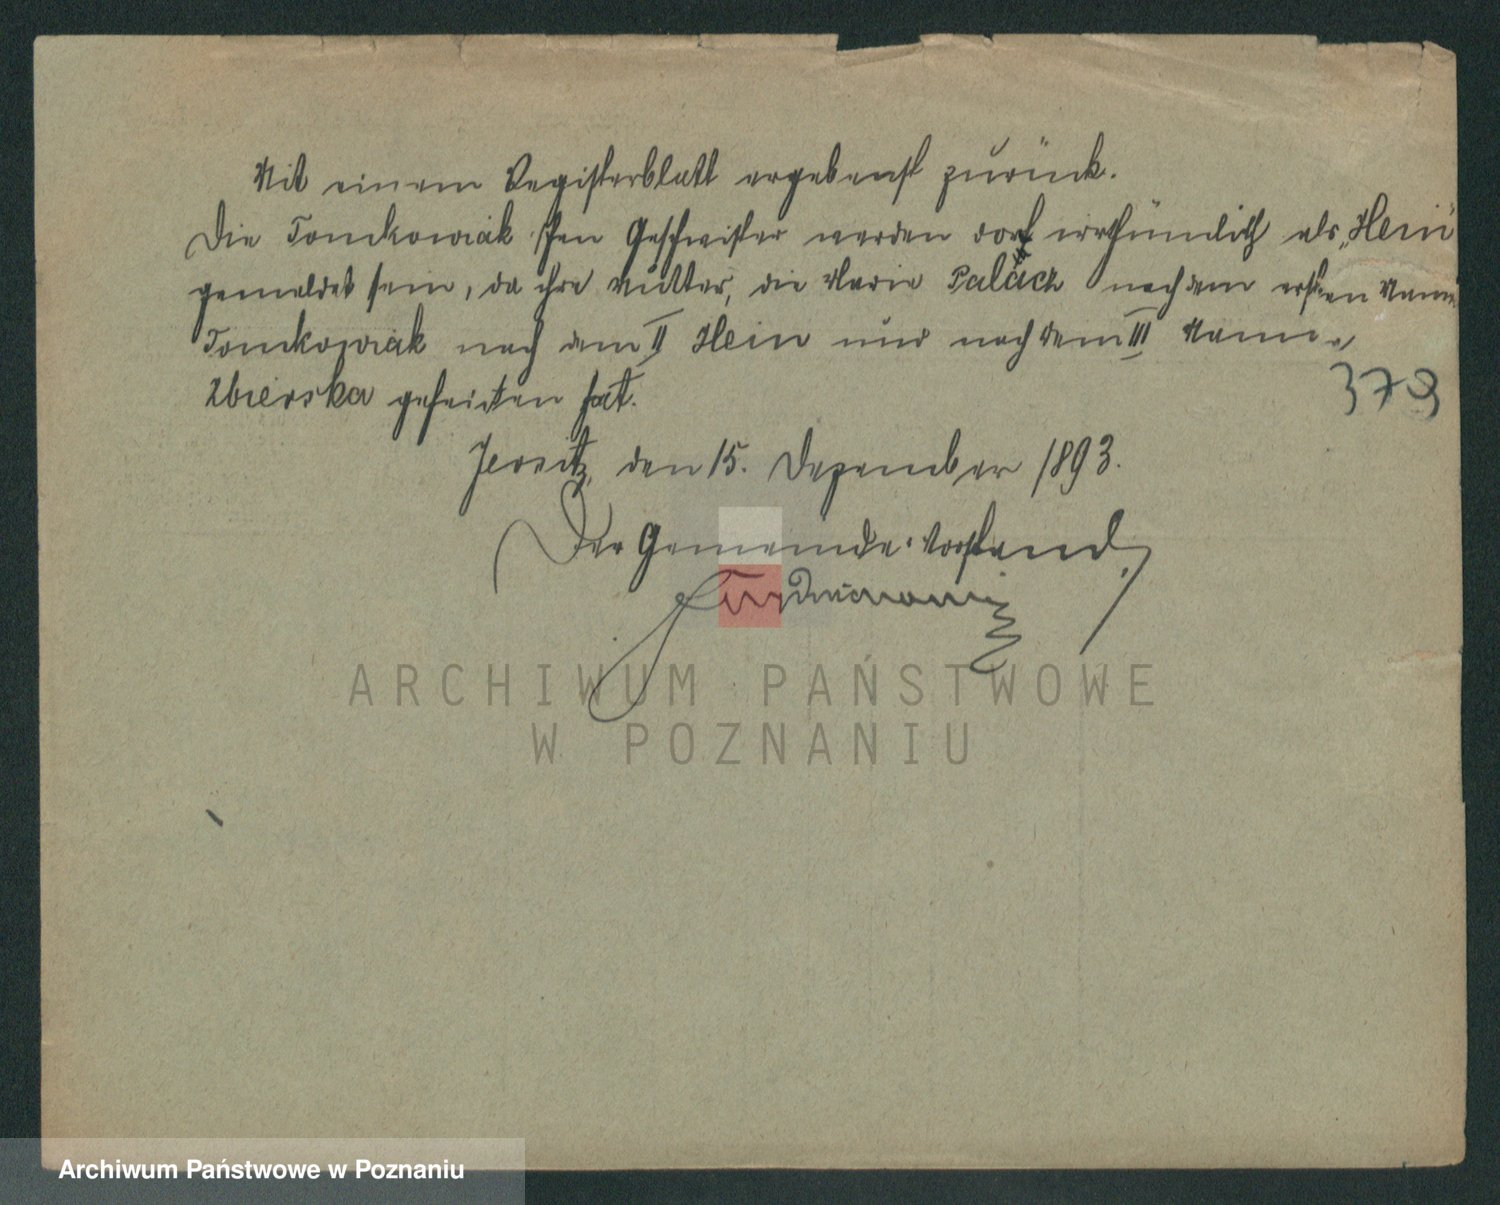 Mit einem Registerblatt ergebenst zurück.
Die Tomkowiak'schen Geschwister werden dort irrthümlich als „Hein"
gemeldet sein, da ihre Mutter, die Marie Palacz nach dem ersten Manne
Tomkowiak nach dem II Hein und nach dem III Manne
379
Zbierska geheißen hat.
Jersitz, den 15. Dezember 1893.
Der Gemeinde-Vorstand,
ARCHIWUM PAŃSTWOWE
W POZNANIU
Archiwum Państwowe w Poznaniu